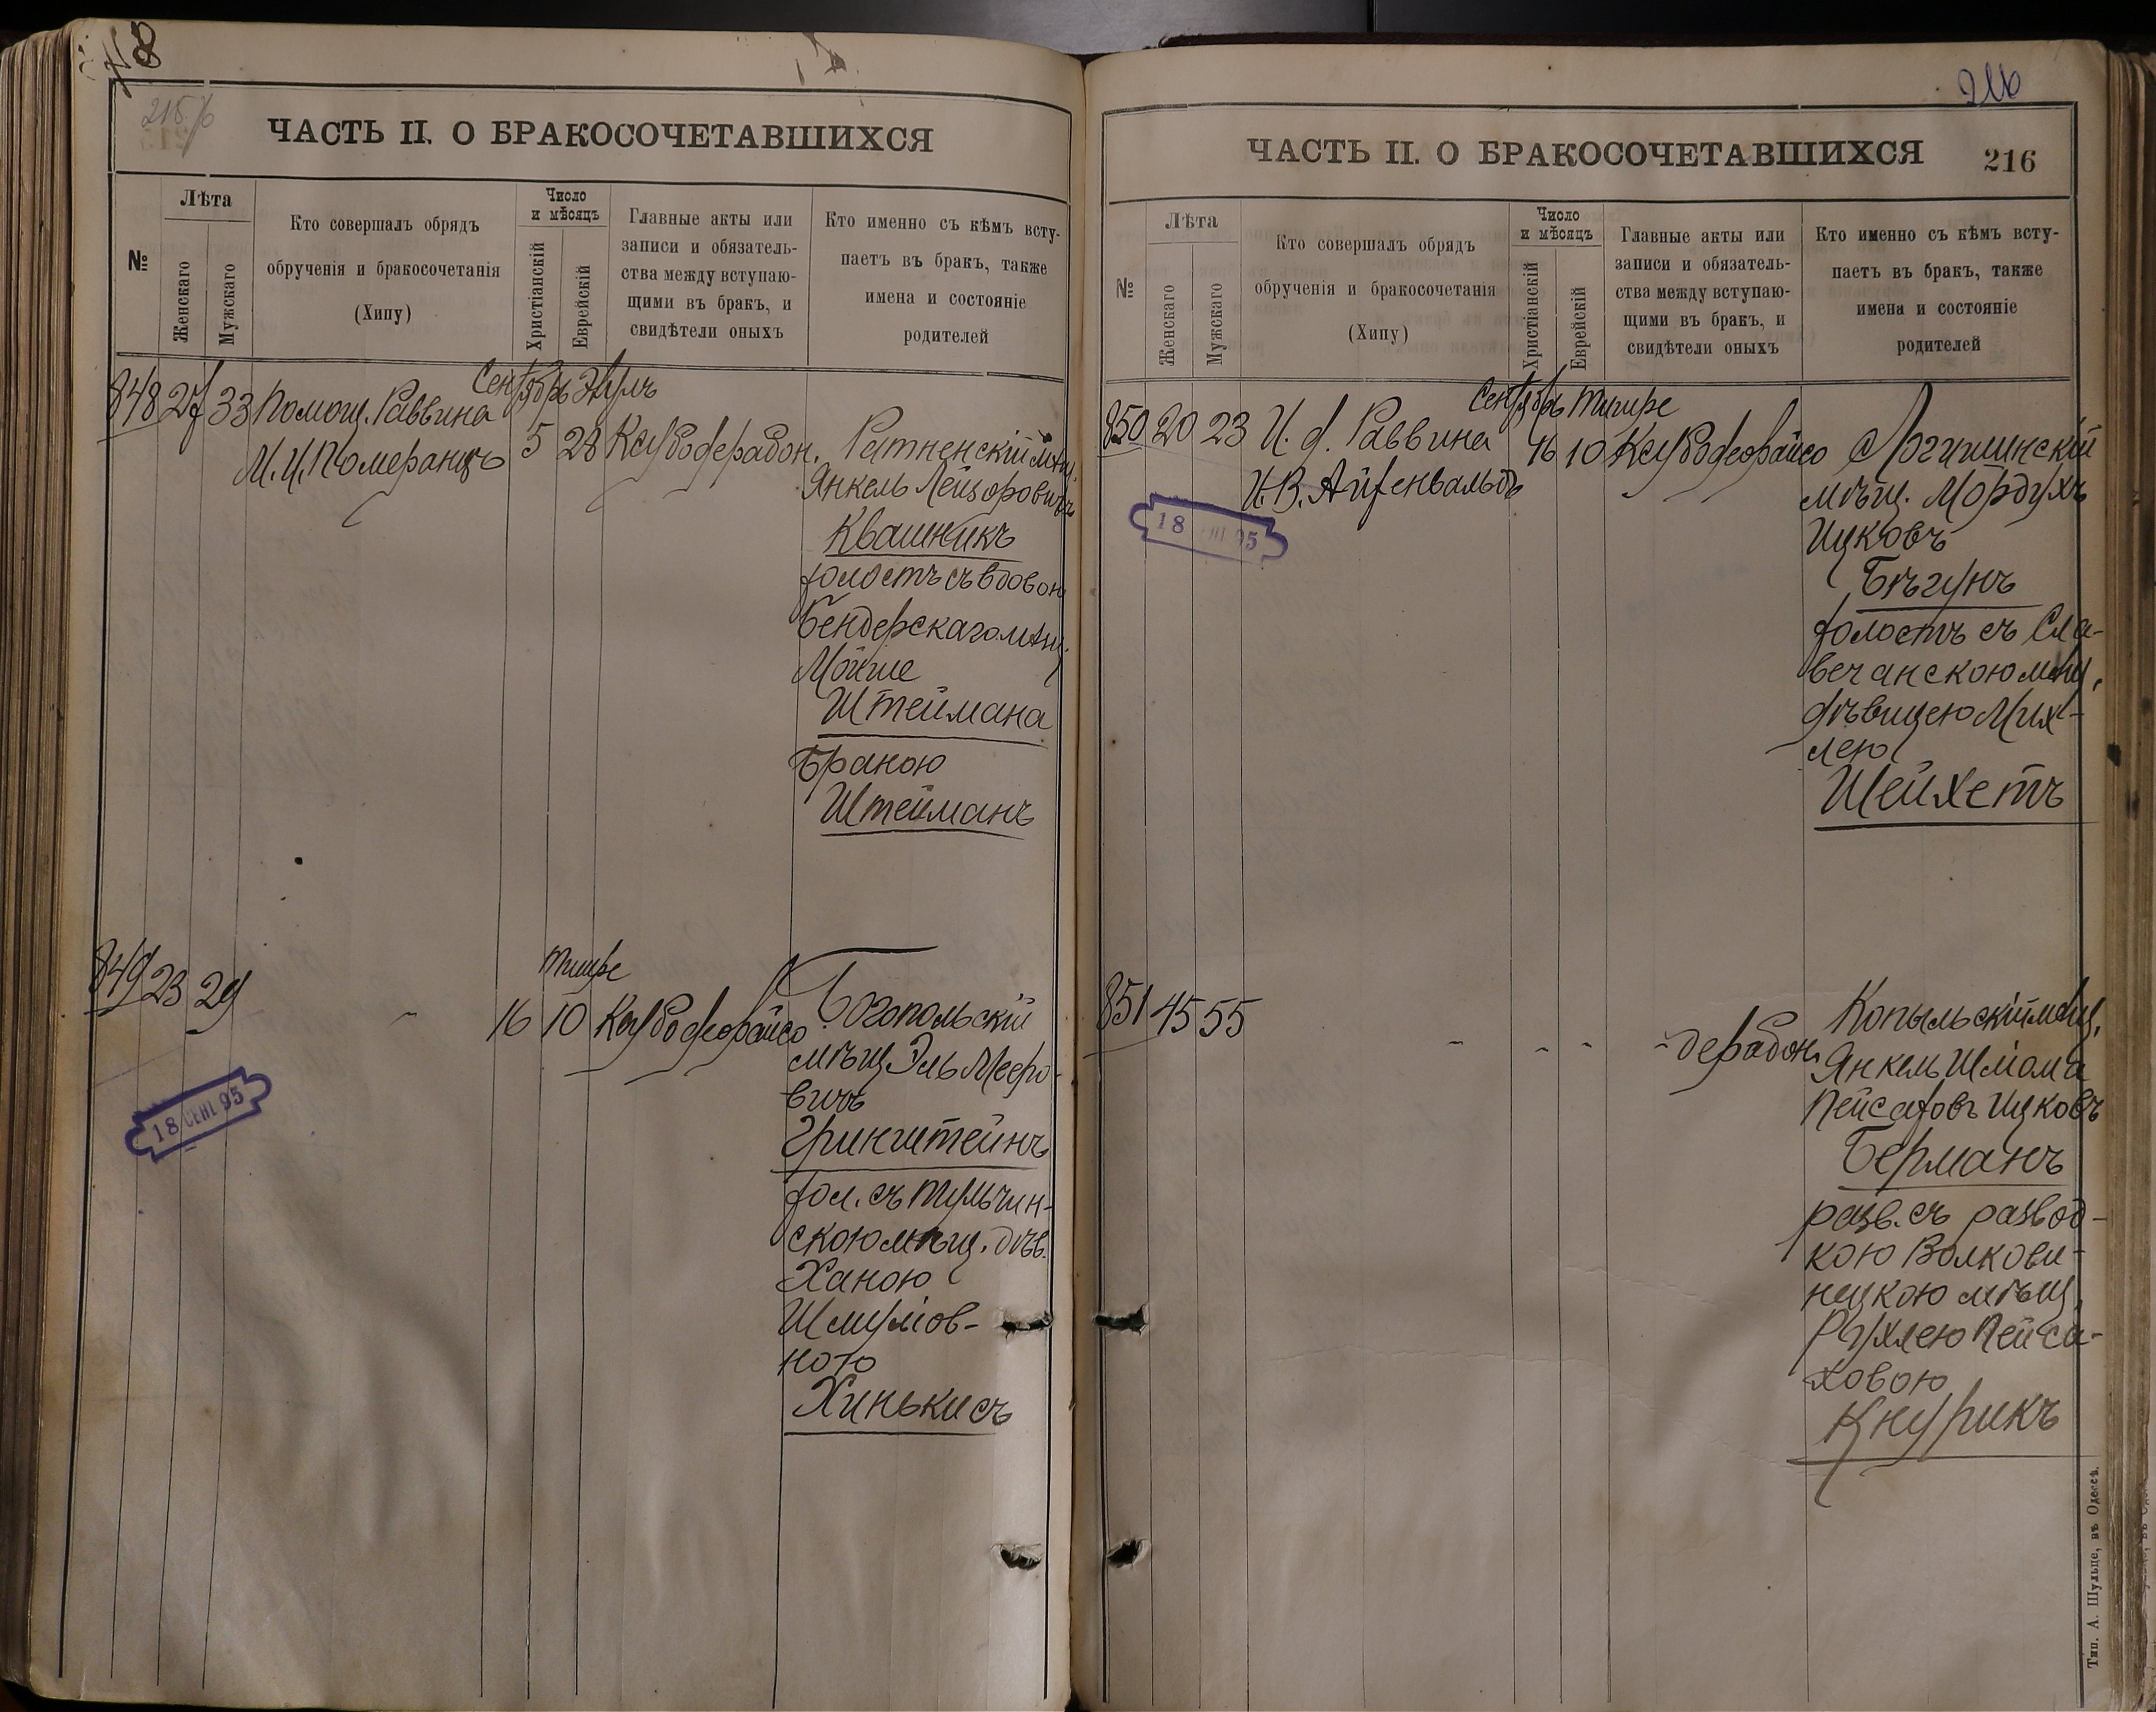 78
215/6
ЧАСТЬ II. О БРАКОСОЧЕТАВШИХСЯ
№
Лѣта
Женскаго
Мужскаго
Кто совершалъ обрядъ
обрученія и бракосочетанія
(Хипу)
Число
и мѣсяцъ
Христіанскій
Еврейскій
Главные акты или
записи и обязатель-
ства между вступаю-
щими въ бракъ, и
свидѣтели оныхъ
Кто именно съ кѣмъ всту-
паетъ въ бракъ, также
имена и состояніе
родителей
Сентябрь Элулъ
848 27 33 Помощ. Раввина
М. И. Померанцъ
5 28 Кауводерабон.
Ратненскій мѣщ.
Янкель Лейзоровичъ
Квашникъ
холостъ съ вдовою
Бендерскаго мѣщ.
Мойше
Штеймана
Браною
Штейманъ
Тишре
849 23 29 " 16 10 Каубофеобайсо
Богопольскій
мѣщ Эль Мееро-
вичъ
Гринштейнъ
хол. съ Тульчин-
скою мѣщ. дѣв.
Ханою
Шмулов-
ною
Хинькисъ
18 СЕНТ 95
216
ЧАСТЬ II. О БРАКОСОЧЕТАВШИХСЯ 216
№
Лѣта
Женскаго
Мужскаго
Кто совершалъ обрядъ
обрученія и бракосочетанія
(Хипу)
Число
и мѣсяцъ
Христіанскій
Еврейскій
Главные акты или
записи и обязатель-
ства между вступаю-
щими въ бракъ, и
свидѣтели оныхъ
Кто именно съ кѣмъ всту-
паетъ въ бракъ, также
имена и состояніе
родителей
Сентябрь Тишре
850 20 23 И. д. Раввина
И. В. Айзенвальдъ
16 10
Логишинскій
мѣщ. Мордухъ
Ицковъ
Бѣгунъ
холостъ съ Сла-
вечанскою мѣщ.
дѣвицею Мих-
лею
Шейхетъ
18 95
851 45 55 " " " " дерабон.
Копыльскій мѣщ.
Янкель Шлома
Пейсаховъ Ицковъ
Берманъ
разв. съ развод-
кою Волкови-
нецкою мѣщ.
Рухлею Пейса-
ховою
Кнурикъ
Тип. А. Шульце, въ Одессѣ.